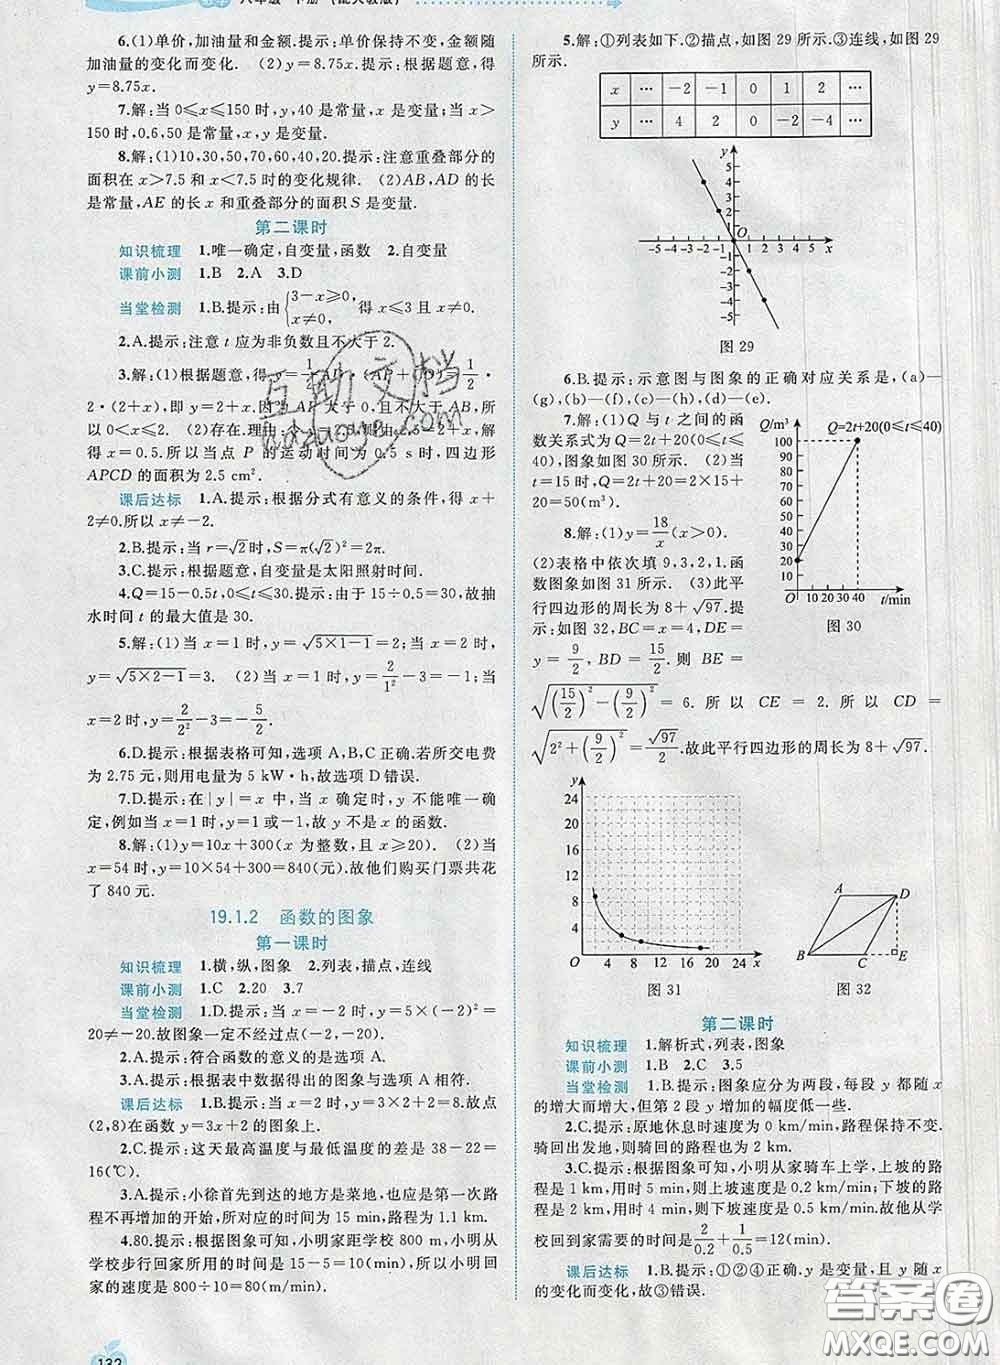 八年级 下册 (配人教版)
6.(1)单价,加油量和金额.提示:单价保持不变,金额随
加油量的变化而变化. (2)y=8.75x.提示:根据题意,得
y=8.75x.
7.解:当 0≤x≤150 时,y,40 是常量,x 是变量;当 x>
150 时,0.6,50 是常量,x,y 是变量.
8.解:(1)10,30,50,70,60,40,20.提示:注意重叠部分的
面积在 x>7.5 和 x<7.5 时的变化规律. (2)AB,AD 的长
是常量,AE 的长 x 和重叠部分的面积 S 是变量.
第二课时
知识梳理 1.唯一确定,自变量,函数 2.自变量
课前小测 1.B 2.A 3.D
当堂检测 1.B.提示:由{3-x≥0, x≠0, 得 x≤3 且 x≠0.
2.A.提示:注意 t 应为非负数且不大于 2.
3.解:(1)根据题意,得 y=1/2 AB·(AP+CD)=1/2·
2·(2+x),即 y=2+x.因为 AP 大于 0,且不大于 AD,所
以 0<x≤2. (2)存在.理由:当 y=2.5 时,2+x=2.5,解
得 x=0.5.所以当点 P 的运动时间为 0.5 s 时,四边形
APCD 的面积为 2.5 cm².
课后达标 1.A.提示:根据分式有意义的条件,得 x+
2≠0.所以 x≠-2.
2.B.提示:当 r=√2时,S=π(√2)²=2π.
3.C.提示:根据题意,自变量是太阳照射时间.
4.Q=15-0.5t,0≤t≤30.提示:由于 15÷0.5=30,故抽
水时间 t 的最大值是 30.
5.解:(1)当 x=1 时,y=√(5×1-1)=2;当 x=2 时,
y=√(5×2-1)=3. (2)当 x=1 时,y=2/1²-3=-1;当
x=2 时,y=2/2²-3=-5/2.
6.D.提示:根据表格可知,选项 A,B,C 正确.若所交电费
为 2.75 元,则用电量为 5 kW·h,故选项 D 错误.
7.D.提示:在|y|=x 中,当 x 确定时,y 不能唯一确
定,例如当 x=1 时,y=1或-1,故 y 不是 x 的函数.
8.解:(1)y=10x+300(x 为整数,且 x≥20). (2)当
x=54 时,y=10×54+300=840(元).故他们购买门票共花
了 840 元.
19.1.2 函数的图象
第一课时
知识梳理 1.横,纵,图象 2.列表,描点,连线
课前小测 1.C 2.20 3.7
当堂检测 1.D.提示:当 x=-2 时,y=5×(-2)²=
20≠-20.故图象一定不经过点(-2,-20).
2.A.提示:符合函数的意义的是选项 A.
3.A.提示:根据表中数据得出的图象与选项 A 相符.
课后达标 1.B.提示:当 x=2 时,y=3×2+2=8.故点
(2,8)在函数 y=3x+2 的图象上.
2.C.提示:这天最高温度与最低温度的差是 38-22=
16(℃).
3.A.提示:小徐首先到达的地方是菜地,也是第一次路
程不再增加的开始,所对应的时间为 15 min,路程为 1.1 km.
4.80.提示:根据图象可知,小明家距学校 800 m,小明从
学校步行回家所用的时间是 15-5=10(min).所以小明回
家的速度是 800÷10=80(m/min).
132
5.解:①列表如下.②描点,如图 29 所示.③连线,如图 29
所示.
x … -2 -1 0 1 2 …
y … 4 2 0 -2 -4 …
y
5
4
3
2
1
O
-5 -4 -3 -2 -1 1 2 3 4 5 x
-1
-2
-3
-4
-5
图 29
6.B.提示:示意图与图象的正确对应关系是,(a)—
(g),(b)—(f),(c)—(h),(d)—(e).
7.解:(1)Q 与 t 之间的函
数关系式为 Q=2t+20(0≤t≤
40),图象如图 30 所示. (2)当
t=15 时,Q=2t+20=2×15+
20=50(m³).
Q/m³ Q=2t+20(0≤t≤40)
100
90
80
70
60
50
40
30
20
10
O 10 20 30 40 t/min
图 30
8.解:(1)y=18/x(x>0).
(2)表格中依次填 9,3,2,1.函
数图象如图 31 所示. (3)此平
行四边形的周长为 8+√97.提
示:如图 32,BC=x=4,DE=
y=9/2,BD=15/2.则 BE=
√((15/2)²-(9/2)²)=6.所以 CE=2.所以 CD=
√(2²+(9/2)²)=√97/2.故此平行四边形的周长为 8+√97.
y
24
20
16
12
8
4
O 4 8 12 16 20 24 x
图 31
A D
B C E
图 32
第二课时
知识梳理 1.解析式,列表,图象
课前小测 1.B 2.C 3.5
当堂检测 1.B.提示:图象应分为两段,每段 y 都随 x
的增大而增大,但第 2 段 y 增加的幅度低一些.
2.C.提示:原地休息时速度为 0 km/min,路程保持不变.
骑回出发地,则骑行的路程也为 2 km.
3.C.提示:根据图象可知,小明从家骑车上学,上坡的路
程为 1 km,用时 5 min,则上坡速度是 0.2 km/min;下坡的路
程为 2 km,用时 4 min,则下坡速度是 0.5 km/min.故他从学
校回到家需要的时间是 2/0.2+1/0.5=12(min).
课后达标 1.B.提示:①②④正确.y 是变量,y 随 x
的变化而变化,故③错误.
互助文档
hdzuoye.com
答案圈
MXQE.COM